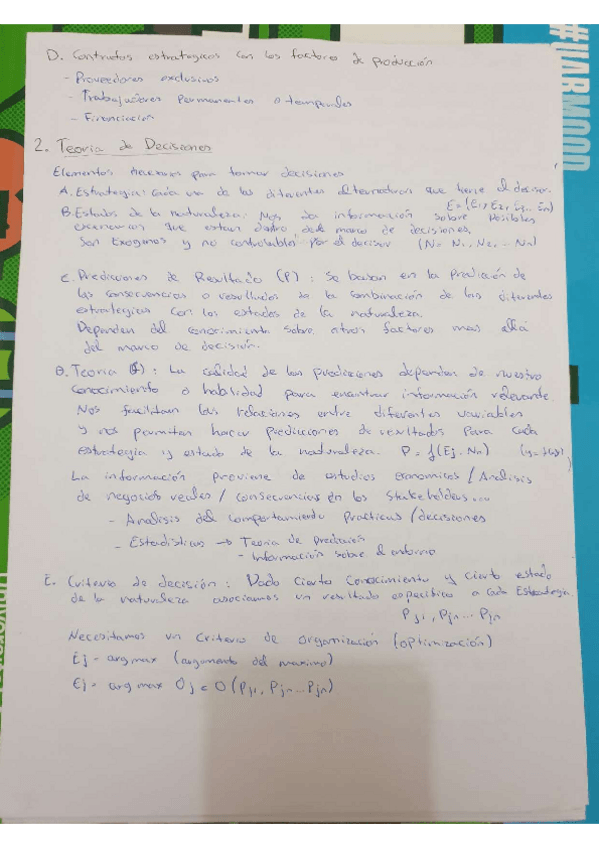 #UARMOOD
D. Contratos estrategicos con los factores de producción
- Proveedores exclusivos
- Trabajadores permanentes o temporales
- Financiación
2. Teoria de Decisiones
Elementos necesarios para tomar decisiones
A. Estrategia: Cada una de las diferentes alternativas que tiene el decisor.
E = (E1, E2, ... En)
B. Estados de la naturaleza: Nos da información sobre posibles
escenarios que estan dentro del marco de decisiones.
Son Exogenos y no controlables por el decisor (N = N1, N2, ... Nn)
C. Predicciones de Resultado (P): Se basan en la predicción de
las consecuencias o resultados de la combinación de las diferentes
estrategias con los estados de la naturaleza.
Dependen del conocimiento sobre otros factores mas allá
del marco de decisión.
D. Teoria (f): La calidad de las predicciones dependen de nuestro
conocimiento o habilidad para encontrar información relevante.
Nos facilitan las relaciones entre diferentes variables
y nos permiten hacer predicciones de resultados para cada
estrategia y estado de la naturaleza. P = f(Ej. Nn) (y = f(x))
La información proviene de estudios economicos / Analisis
de negocios reales / consecuencias en los Stakeholders...
- Analisis del comportamiento practicas / decisiones
- Estadisticas → Teoria de predicción
- Información sobre el entorno
E. Criterio de decisión: Dado cierto conocimiento y cierto estado
de la naturaleza asociamos un resultado especifico a cada Estrategia.
Pj1, Pjn ... Pjn
Necesitamos un criterio de organización (optimización)
Ej = arg max (argumento del maximo)
Ej = arg max Oj = O (Pj1, Pjn ... Pjn)